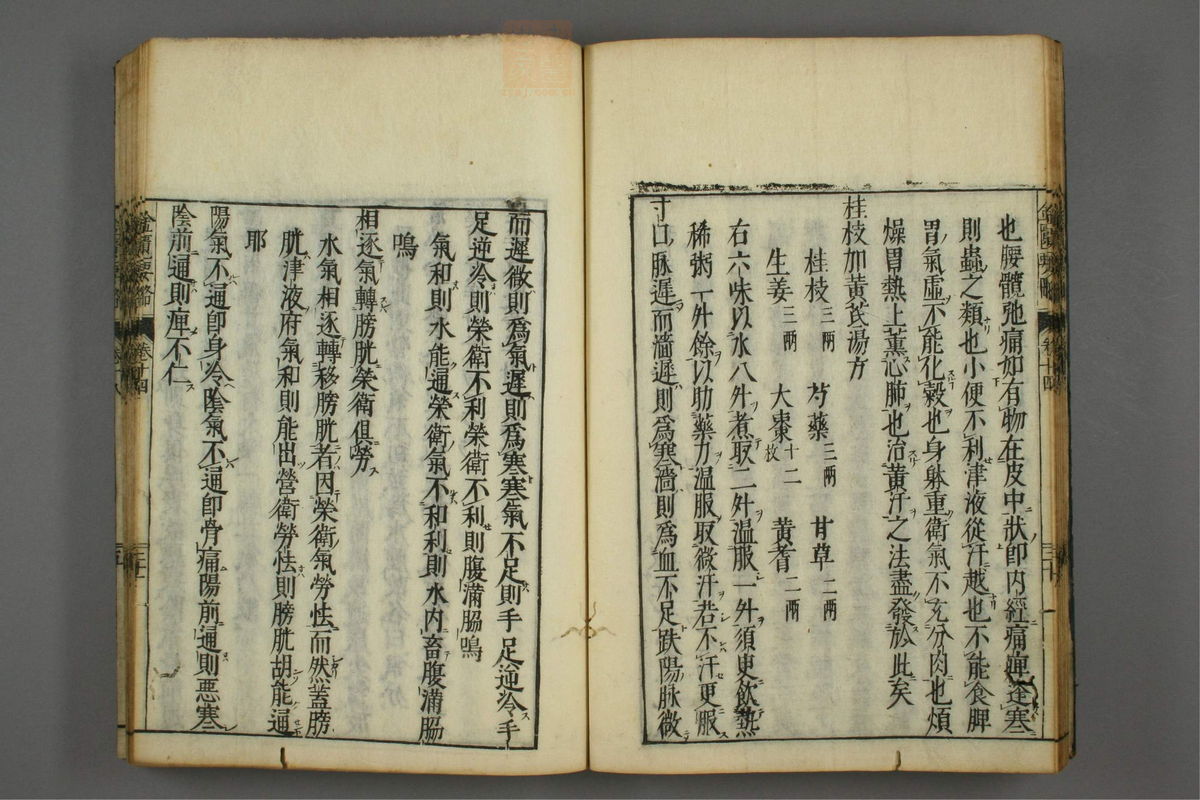 也腰髖弛痛如有物在皮中狀即内經痛痺逢寒
則蟲之類也小便不利津液從汗越也不能食脾
胃氣虛不能化穀也身躰重衛氣不充分肉也煩
燥胃熱上薰心肺也治黃汗之法盡發於此矣
桂枝加黃茋湯方
桂枝三兩 芍藥三兩 甘草二兩
生姜三兩 大棗十二枚 黃耆二兩
右六味以水八升煮取二升温服一升須臾飲熱
稀粥一升餘以助藥力温服取微汗若不汗更服
寸口脉遲而濇遲則爲寒濇則爲血不足趺陽脉微
而遲微則爲氣遲則爲寒寒氣不足則手足逆冷手
足逆冷則榮衛不利榮衛不利則腹滿脇鳴
氣和則水能通榮衛氣不和利則水内畜腹滿脇
鳴
相逐氣轉膀胱榮衛俱勞
水氣相逐轉移膀胱者因榮衛氣勞怯而然蓋膀
胱津液府氣和則能出營衛勞怯則膀胱胡能通
耶
陽氣不通即身冷陰氣不通即骨痛陽前通則惡寒
陰前通則痺不仁
卷十四